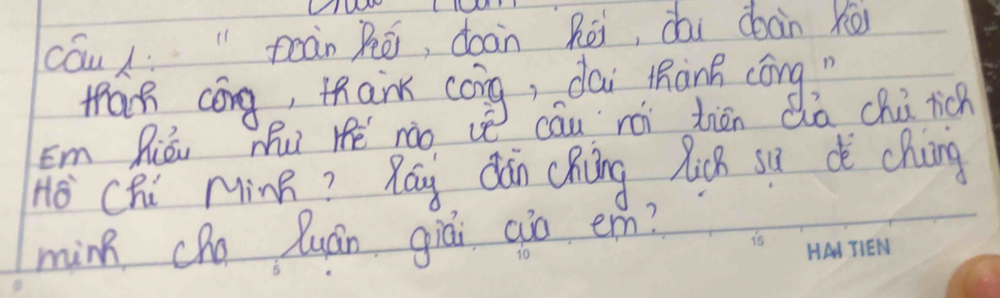 Câu 1: " Đoàn kết, đoàn kết, đại đoàn kết
thành công, thành công, đại thành công"
Em hiểu như thế nào về câu nói trên của chủ tịch
Hồ Chí Minh? Lấy dẫn chứng lịch sử để chứng
minh cho luận giải của em?
5 10 15 HẢI TIẾN